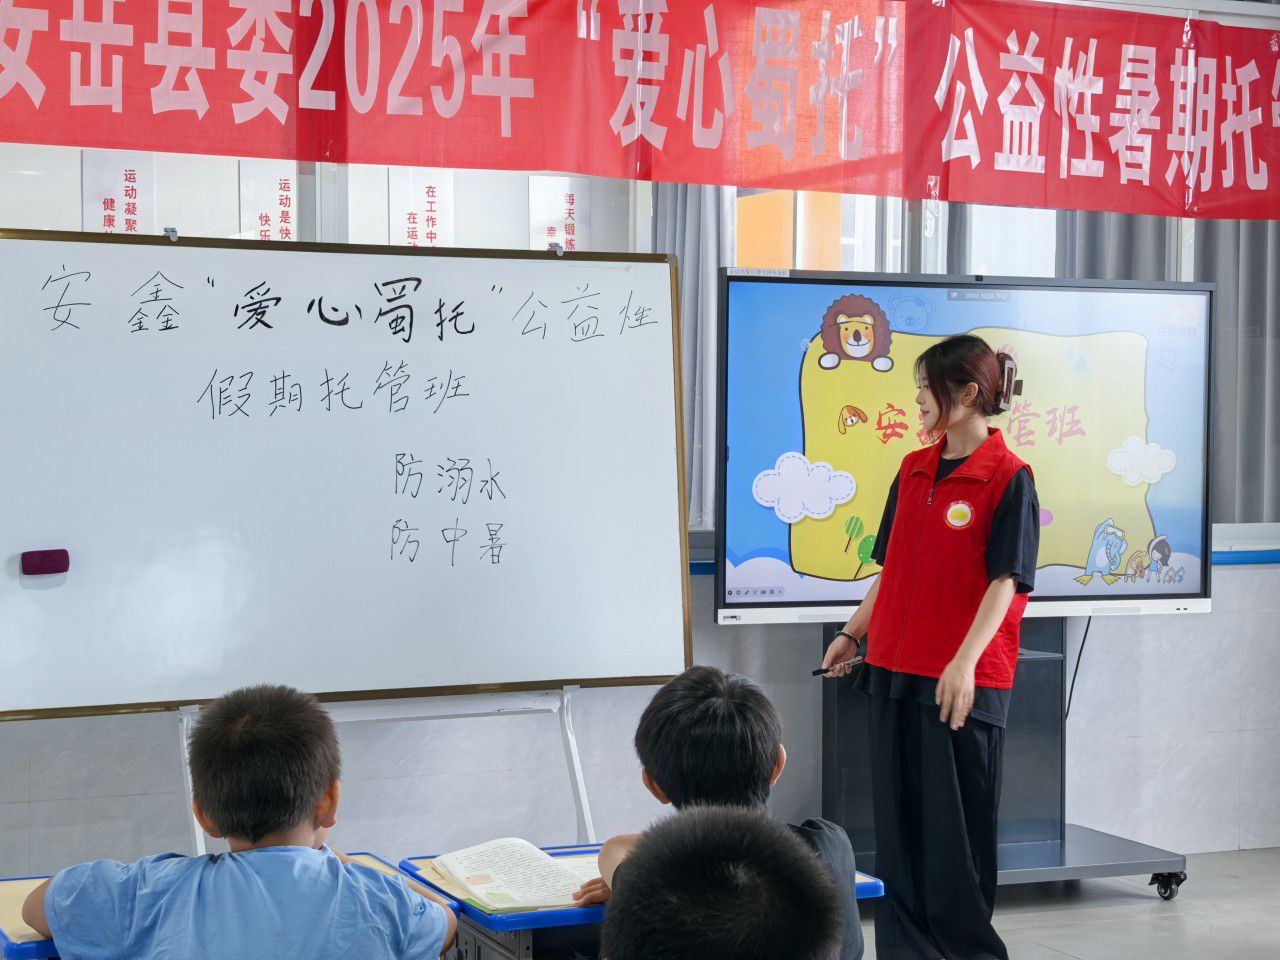 安岳县委2025年“爱心蜀托”公益性暑期托
运动凝聚
健康
运动是快
快乐
在工作中
在运动
每天锻炼
幸
安鑫“爱心蜀托”公益性
假期托管班
防溺水
防中暑
安
管班